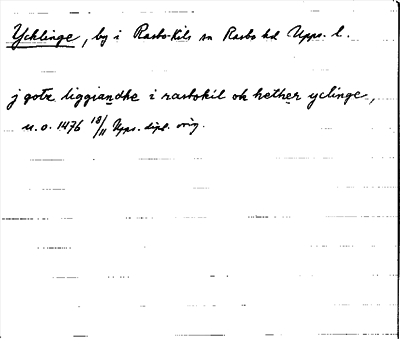 Ycklinge, by i Rasbo-Kils sn Rasbo hd Upps. l.
j gotz liggiandhe i rasbokil ok hether yclinge,
u.o. 1476 18/11 Upps. dipl. orig.